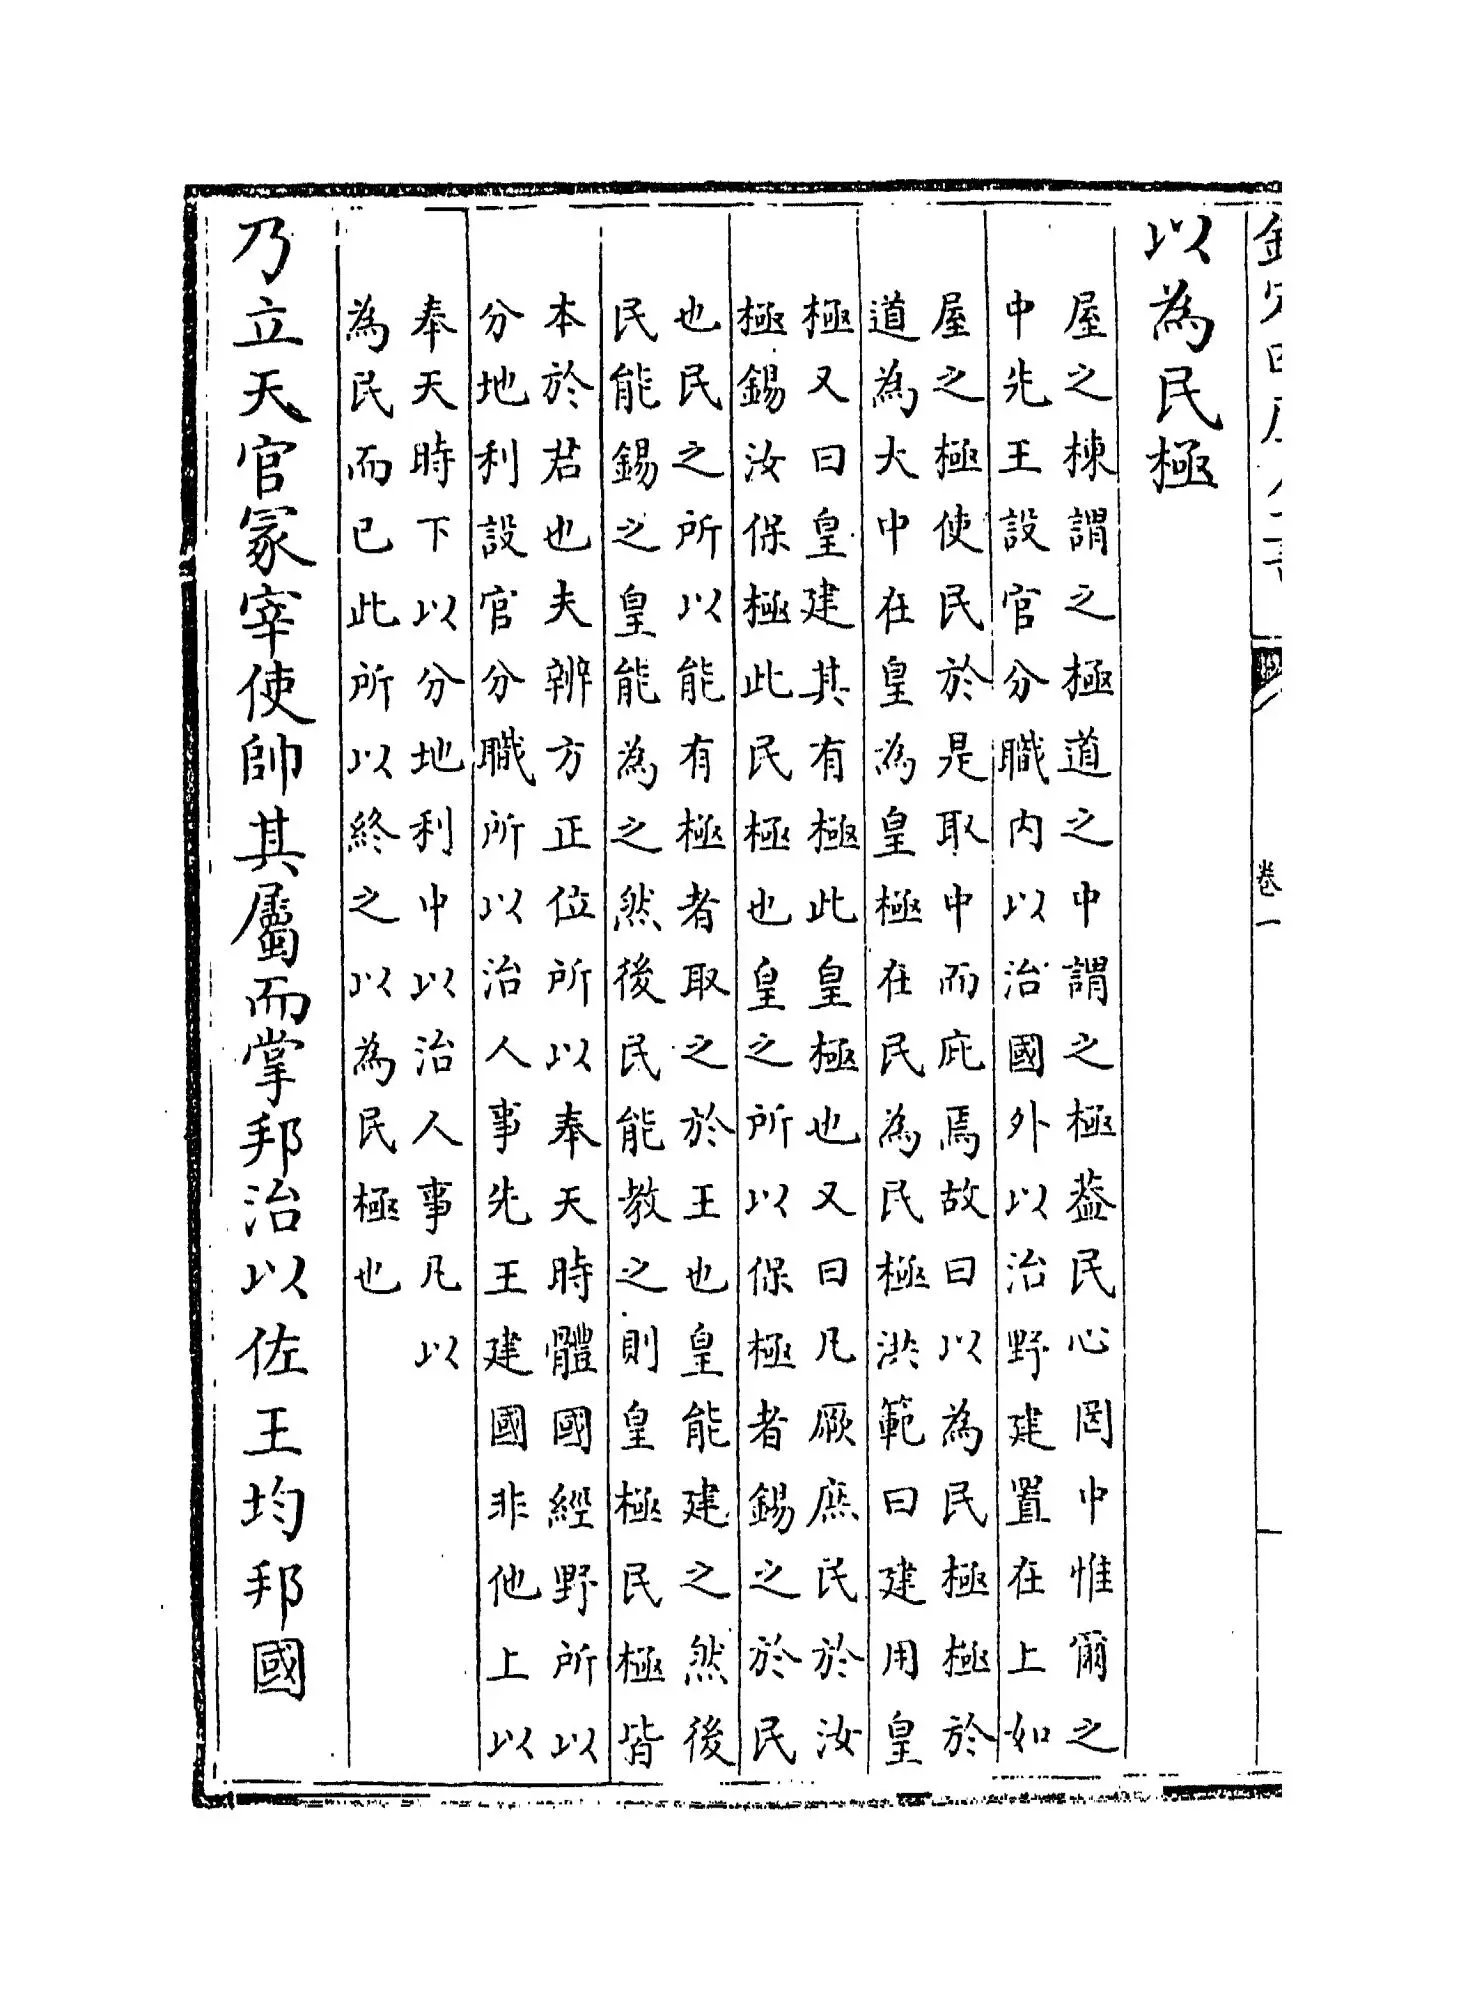 以為民極
屋之棟謂之極道之中謂之極蓋民心罔中惟爾之
中先王設官分職内以治國外以治野建置在上如
屋之極使民於是取中而庇焉故曰以為民極極於
道為大中在皇為皇極在民為民極洪範曰建用皇
極又曰皇建其有極此皇極也又曰凡厥庶民於汝
極錫汝保極此民極也皇之所以保極者錫之於民
也民之所以能有極者取之於王也皇能建之然後
民能錫之皇能為之然後民能教之則皇極民極皆
本於君也夫辨方正位所以奉天時體國經野所以
分地利設官分職所以治人事先王建國非他上以
奉天時下以分地利中以治人事凡以
為民而已此所以終之以為民極也
乃立天官冢宰使帥其屬而掌邦治以佐王均邦國
卷一